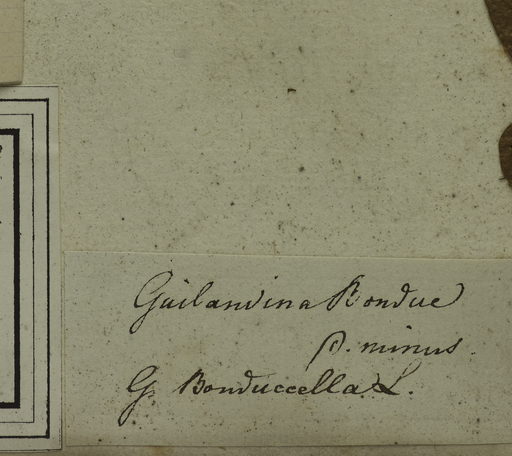 Guilandina Bonduc
β. minus.
G. Bonduccella L.